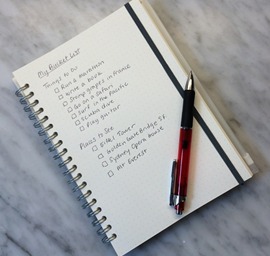 My Bucket List
Things to do
Run a marathon
Write a book
Stomp grapes in France
Go on a safari
Surf in the Pacific
Scuba dive
Play guitar
Places to See
Eiffel Tower
Golden Gate Bridge SF
Sydney Opera House
Mt Everest